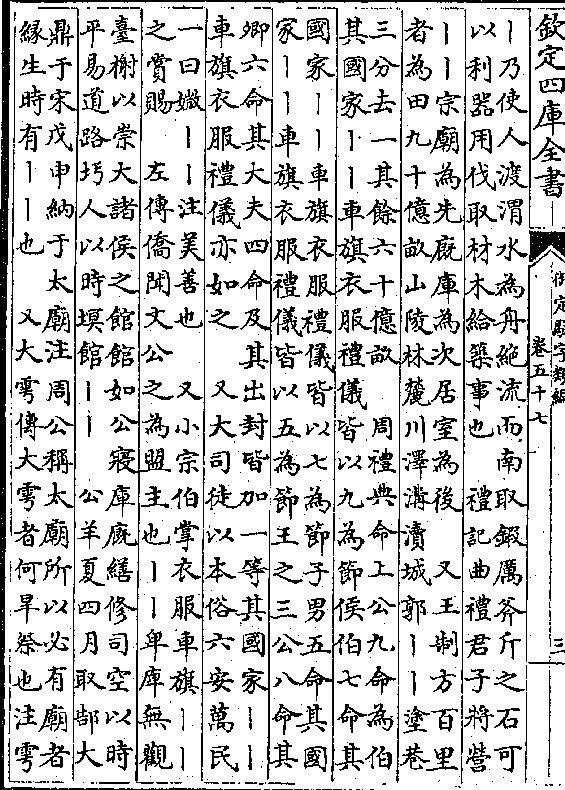 欽定四庫全書
御定駢字類編
卷五十七
三
丨乃使人渡渭水為舟絶流而南取鍜厲斧斤之石可
以利器用伐取材木給築事也 禮記曲禮君子將營
丨丨宗廟為先廐庫為次居室為後 又王制方百里
者為田九十億畝山陵林麓川澤溝瀆城郭丨丨塗巷
三分去一其餘六十億畝 周禮典命上公九命為伯
其國家丨丨車旗衣服禮儀皆以九為節侯伯七命其
國家丨丨車旗衣服禮儀皆以七為節子男五命其國
家丨丨車旗衣服禮儀皆以五為節王之三公八命其
卿六命其大夫四命及其出封皆加一等其國家丨丨
車旗衣服禮儀亦如之 又大司徒以本俗六安萬民
一曰媺丨丨注美善也 又小宗伯掌衣服車旗丨丨
之賞賜 左傳僑聞文公之為盟主也丨丨卑庫無觀
臺榭以崇大諸侯之館館如公寢庫廐繕修司空以時
平易道路圬人以時塓館丨丨 公羊夏四月取郜大
鼎于宋戊申納于太廟注周公稱太廟所以必有廟者
縁生時有丨丨也 又大雩傳大雩者何旱祭也注雩